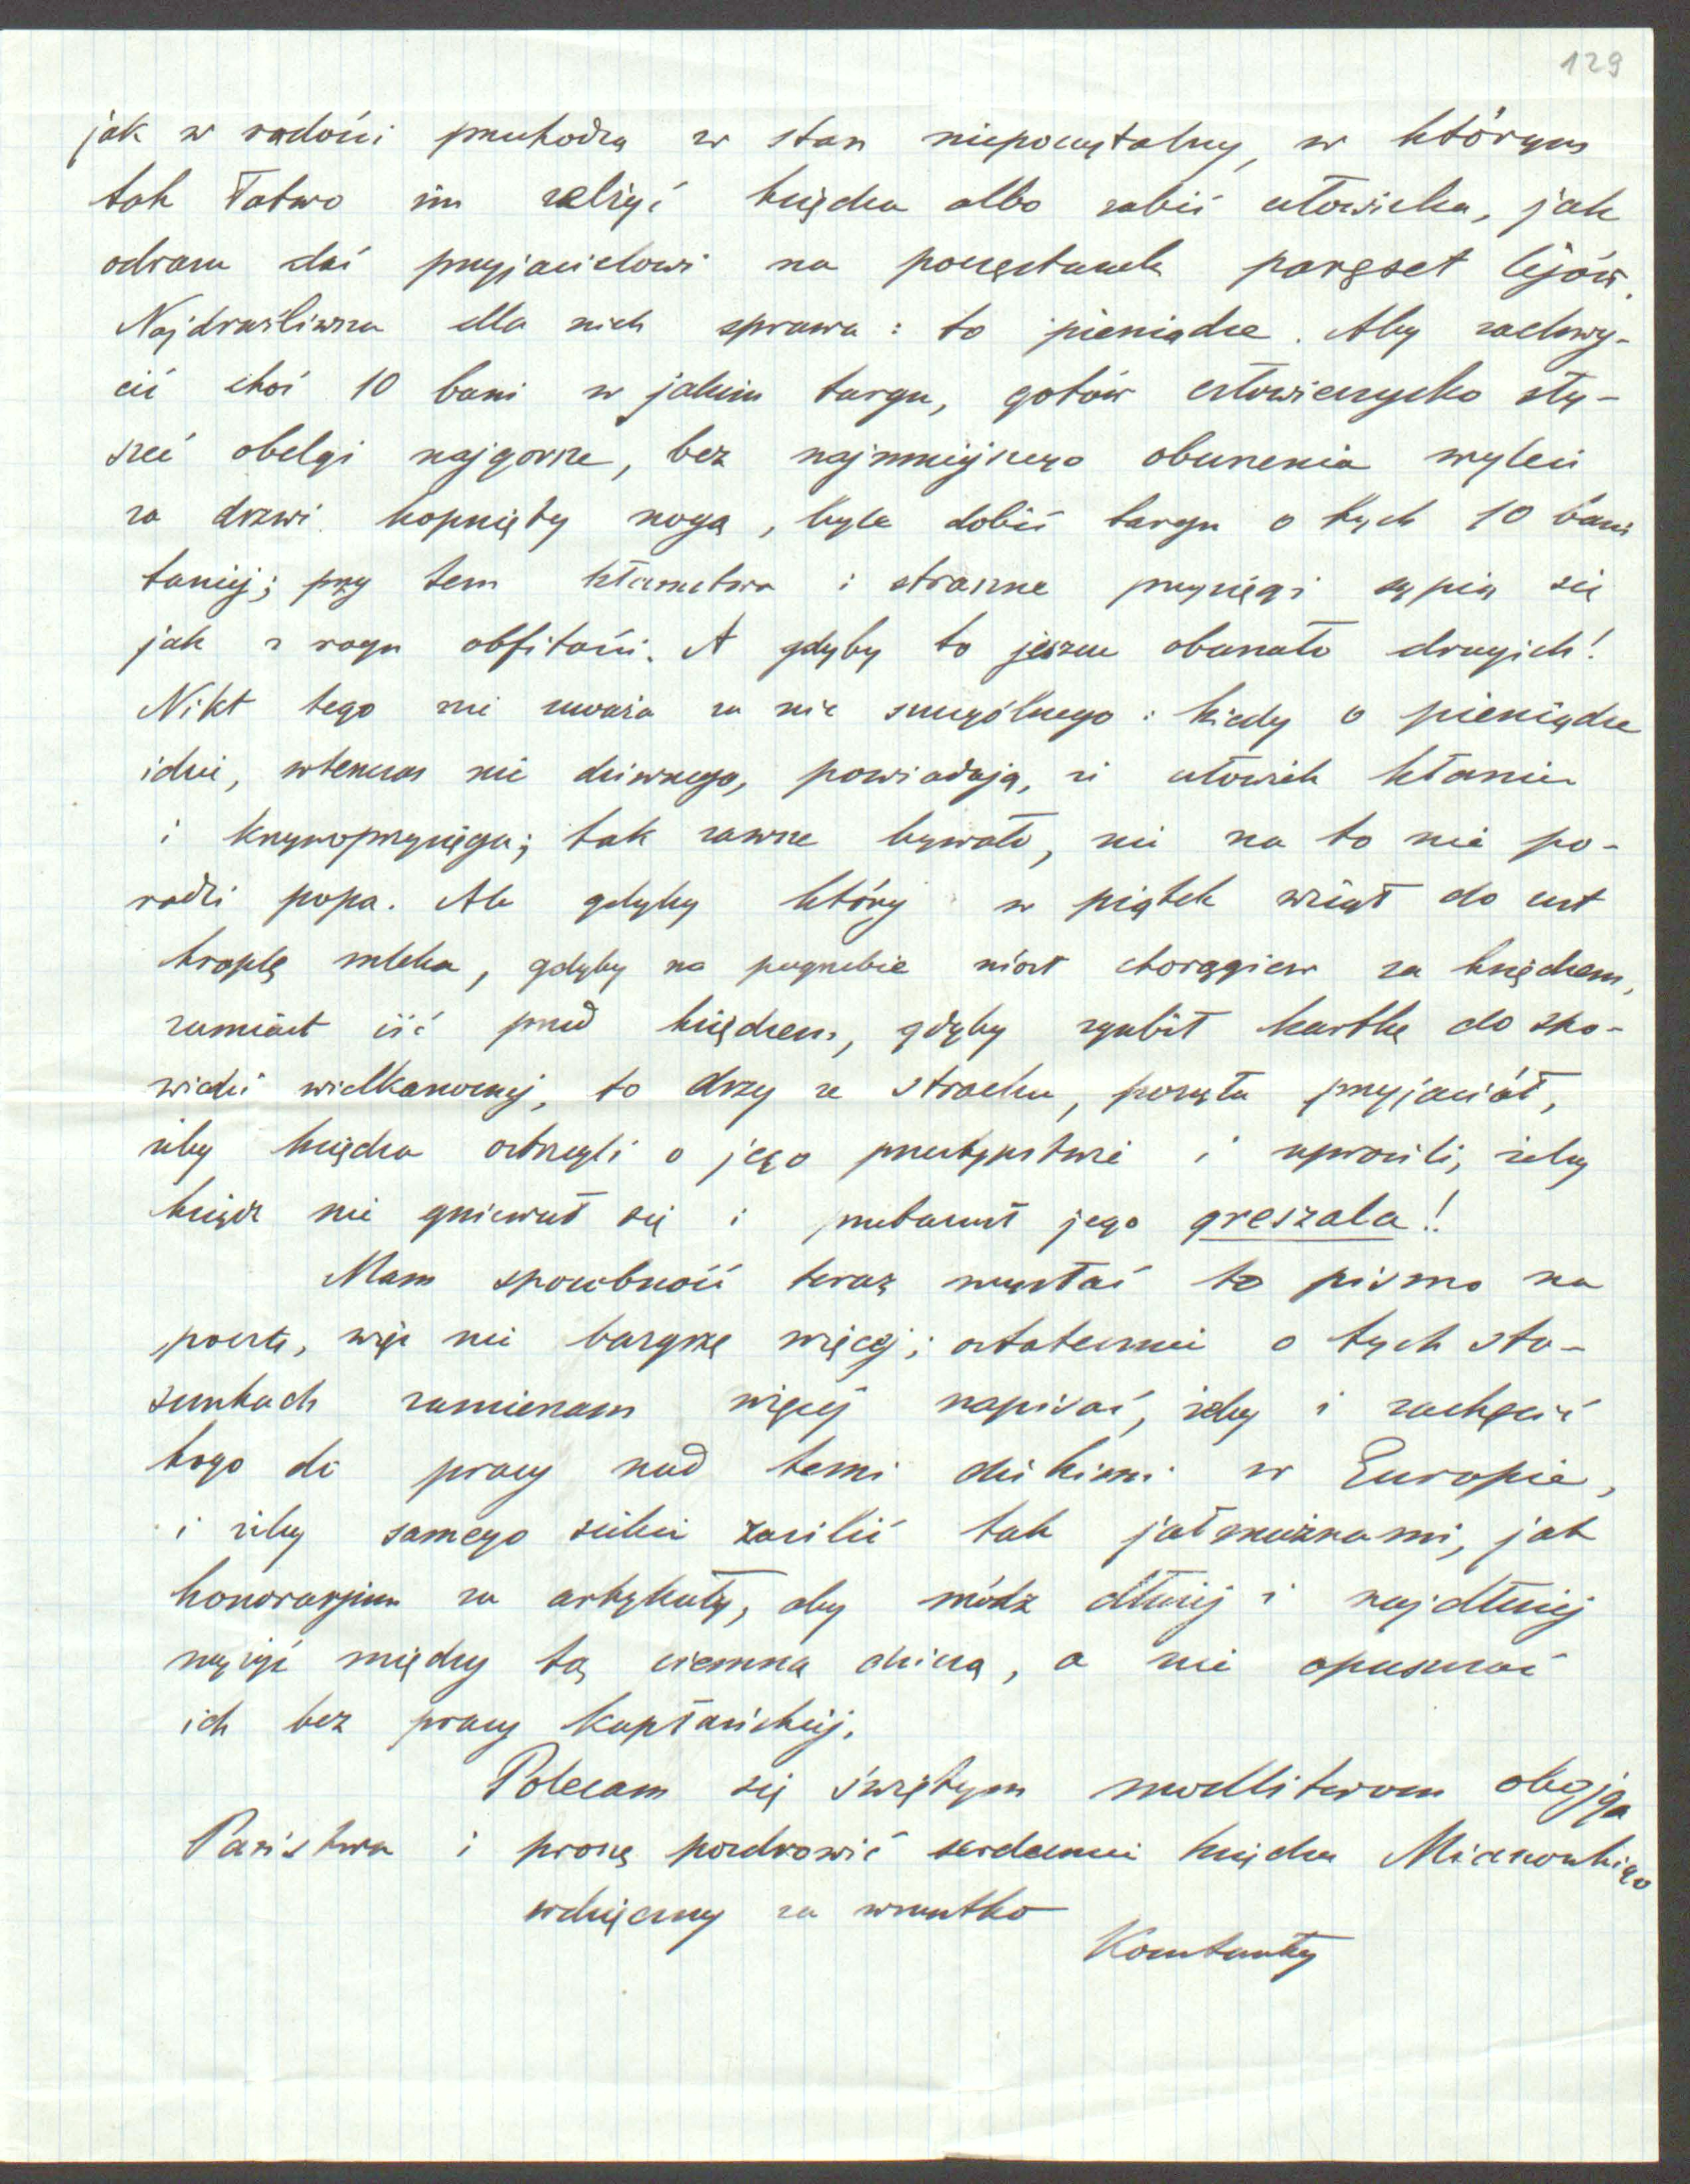 129
jak w radości przechodzą w stan niepoczytalny, w którym
tak łatwo im zelżyć księdza albo zabić człowieka, jak
odrazu dać przyjacielowi na poczęstunek paręset lejów.
Najdrażliwsza dla nich sprawa: to pieniądze. Aby zachwy-
cić choć 10 bani w jakim targu, gotów człowieczysko sły-
szeć obelgi najgorsze, bez najmniejszego oburzenia wyleci
za drzwi kopnięty nogą, byle dobić targu o tych 10 bani
taniej; przy tem kłamstwa i straszne przysięgi sypią się
jak z rogu obfitości. A gdyby to jeszcze oburzało drugich!
Nikt tego nie uważa za nic szczególnego: kiedy o pieniądze
idzie, wtenczas nic dziwnego, powiadają, że człowiek kłamie
i krzywoprzysięga; tak zawsze bywało, nic na to nie po-
radzi popa. Ale gdyby który w piątek wziął do ust
kroplę mleka, gdyby na pogrzebie niósł chorągiew za księdzem,
zamiast iść przed księdzem, gdyby zgubił kartkę do spo-
wiedzi wielkanocnej, to drży ze strachu, posyła przyjaciół,
żeby księdza ostrzegli o jego przestępstwie i uprosili, żeby
ksiądz nie gniewał się i przebaczył jego greszala!
Mam sposobność teraz wysłać to pismo na
pocztę, więc nie bazgrzę więcej; ostatecznie o tych sto-
sunkach zamierzam więcej napisać, żeby i zachęcić
kogo do pracy nad temi dzikimi w Europie,
i żeby samego siebie zasilić tak jałmużnami, jak
honorarjum za artykuły, aby módz dłużej i najdłużej
wyżyć między tą ciemną dziczą, a nie opuszczać
ich bez pracy kapłańskiej.
Polecam się świętym modlitwom obojga
Państwa i proszę pozdrowić serdecznie księdza
wdzięczny za wszystko
Konstanty